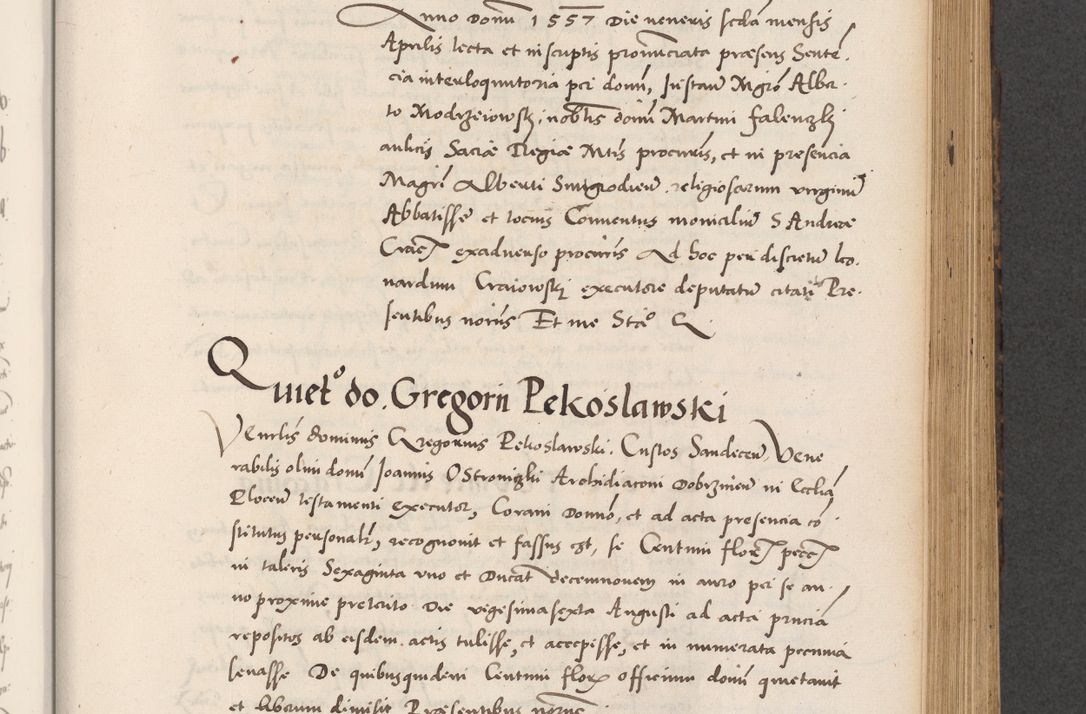 Anno Domini 1557 Die veneris scda mensis
Aprilis lecta et in scriptis pronunciata præsens Senten
cia interloquutoria per domi, Instan Mgro Alber
to Modrzeiowski, nobilis domi Martini Falenczki
aulici Sacræ Regiæ Mtis procuris, et in presencia
Magri Alberti religiosarum virginu
Abbatisse et tocius Conuentus monicaliu S Andreæ
Crac exaduerso procuris Ad hoc per discretu Leo
nardum Craiowski executore deputatu citati Præ
sentibus Et me
Quieto do. Gregorii Pekoslawski
Venrlis dominus Gregorius Pekoslawski. Custos Sandecen, Vene
rabilis olim domi Joannis Ostroviczki Archidiaconi Dobrzinen in Ecclia
Plocen testamenti executor, Coram Domno, et ad acta presencia co
stitutus personalr, recognouit et fassus est, se Centum floren pecc
in taleris Sexaginta vno et Ducat decemnouem in auro per se an
no proxime preterito Die vigesimasexta Augusti ad acta
repositos ab eisdem actis tulisse, et accepisse, et in numerata pecunia
leuasse De quibusquidem Centum flor officium domi quietauit
et liberum dimisit Præsentibus